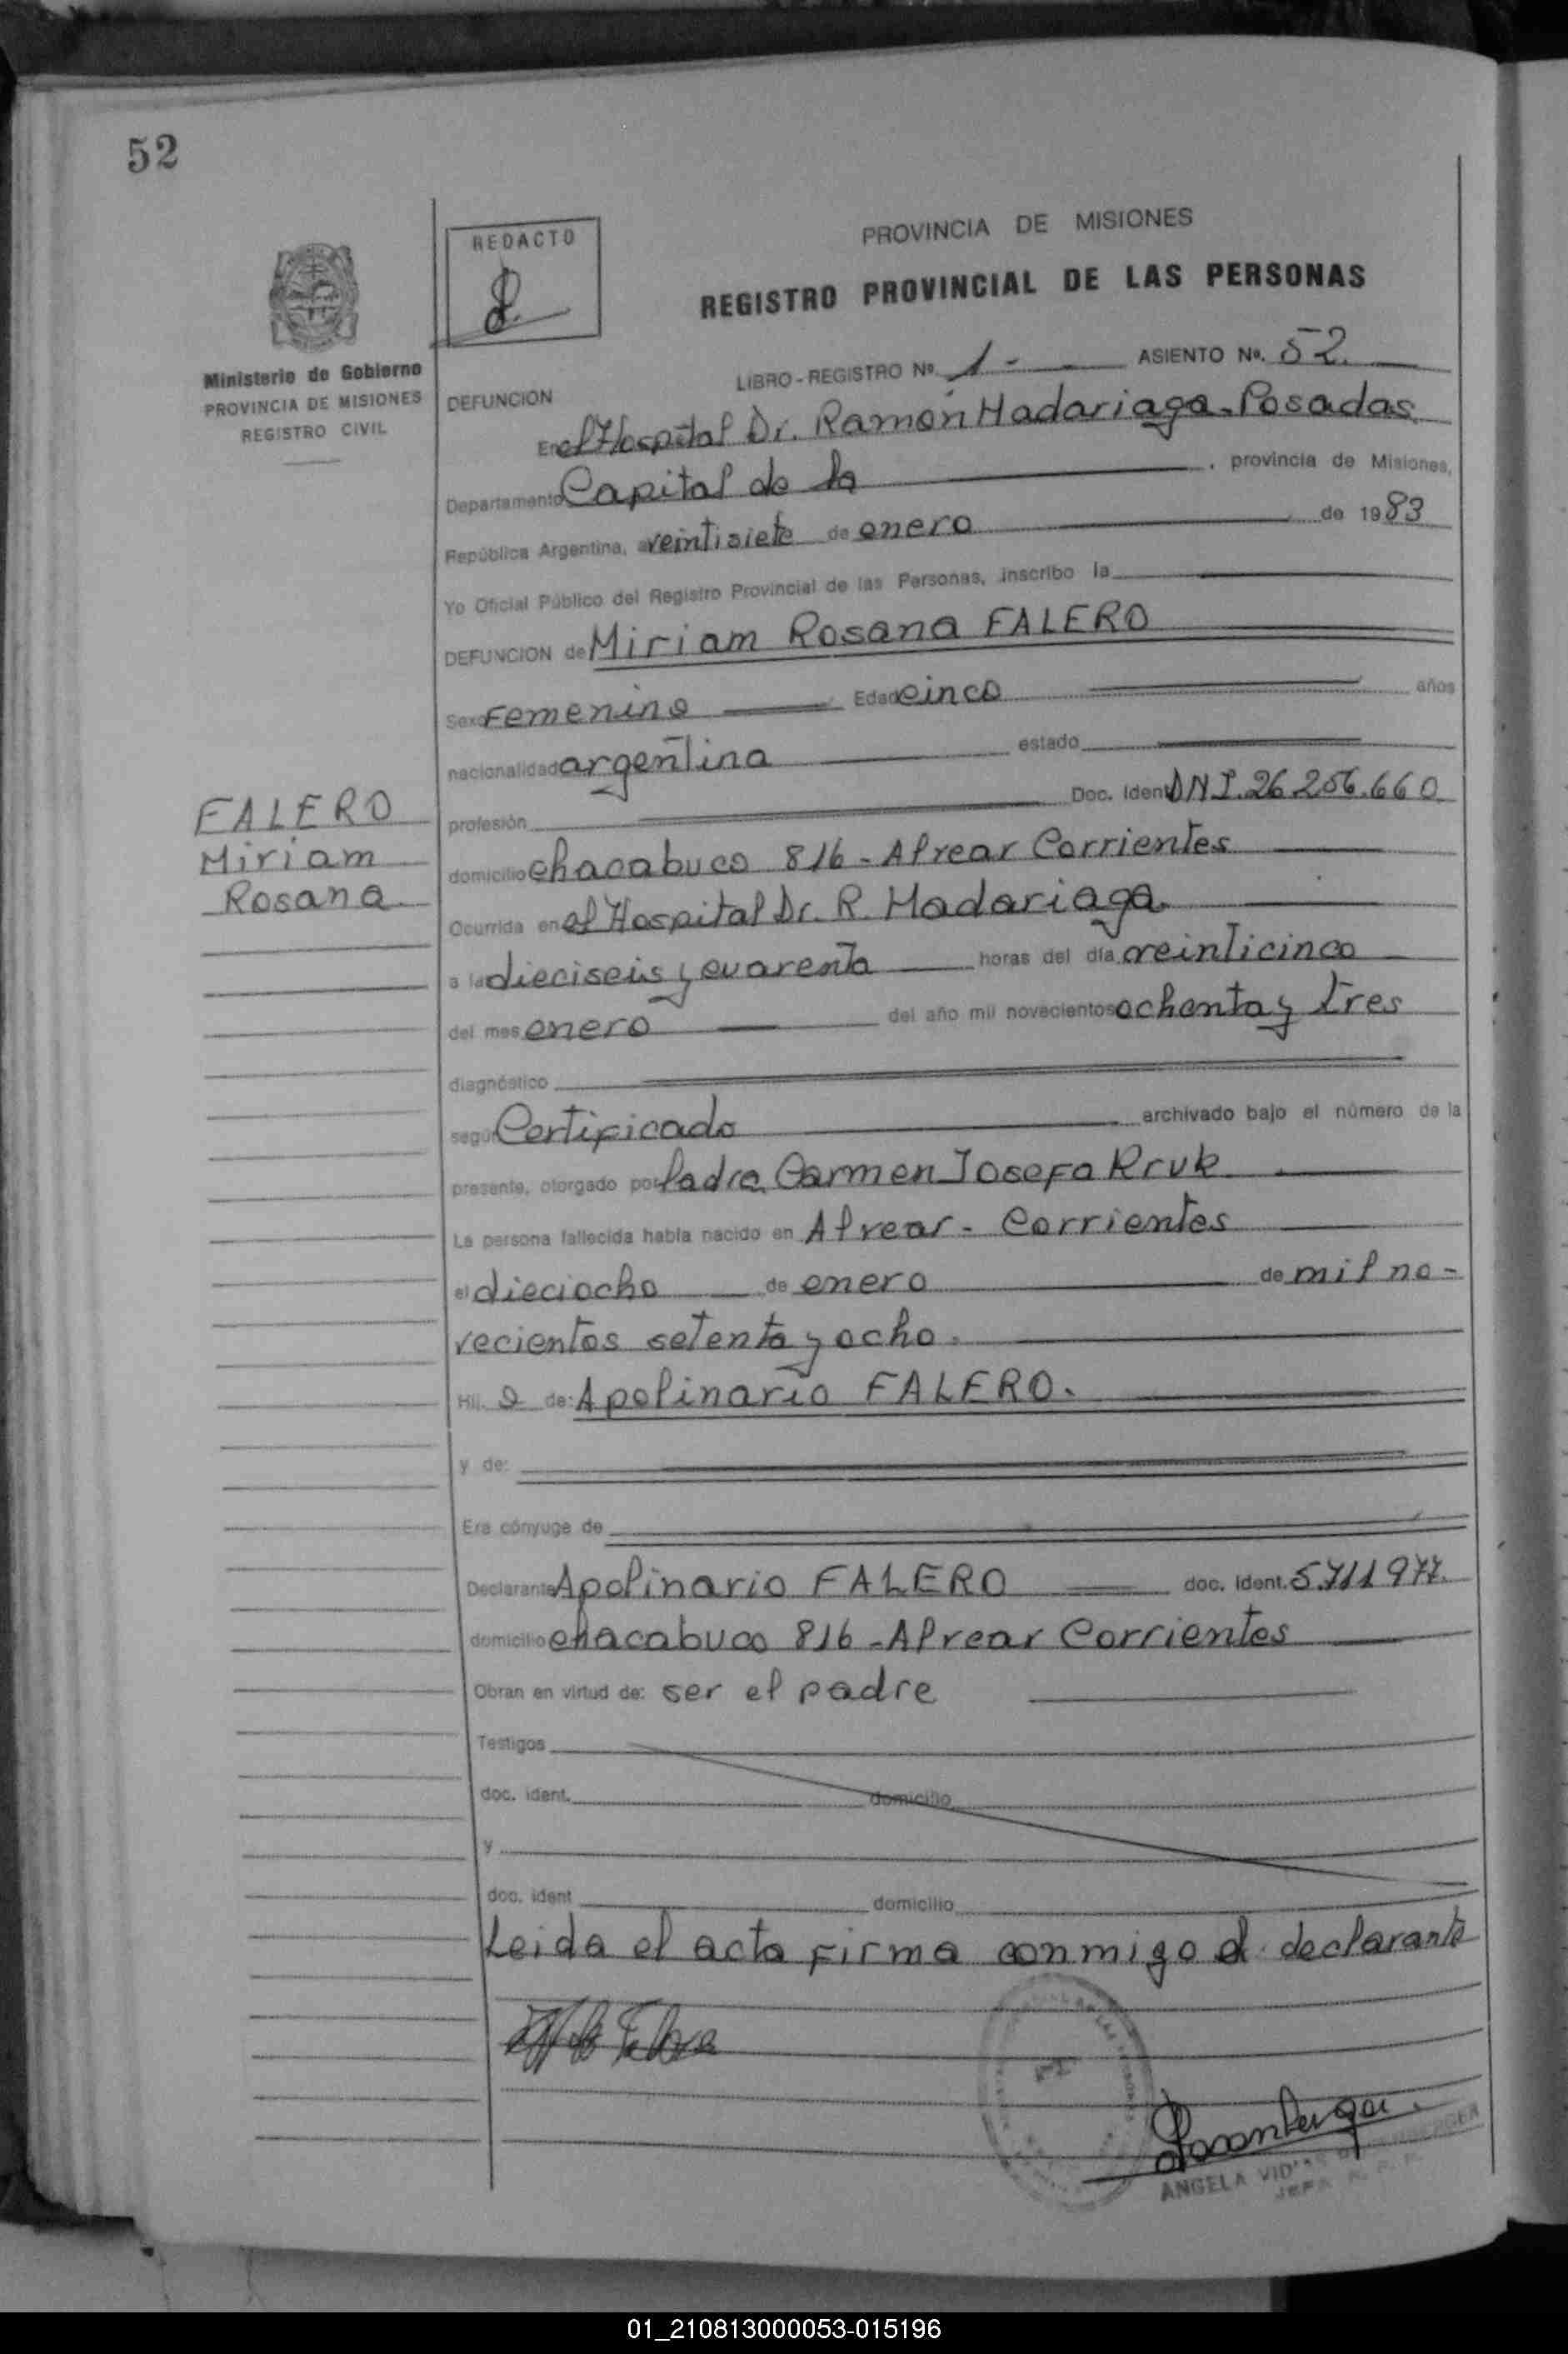 52
REDACTO
PROVINCIA DE MISIONES
REGISTRO PROVINCIAL DE LAS PERSONAS
Ministerio de Gobierno
PROVINCIA DE MISIONES
REGISTRO CIVIL
LIBRO-REGISTRO Nº. 1- ASIENTO Nº. 52.
DEFUNCION
En el Hospital Dr. Ramón Madariaga-Posadas
Departamento Capital de la, provincia de Misiones,
República Argentina, a veintisiete de enero de 1983
Yo Oficial Público del Registro Provincial de las Personas, inscribo la
DEFUNCION de Miriam Rosana FALERO
Sexo Femenino Edad cinco años
nacionalidad argentina estado
profesión Doc. Ident. DNI.26.256.660
FALERO
Miriam
Rosana
domicilio chacabuco 816-Alvear Corrientes
Ocurrida en el Hospital Dr. R. Madariaga
a la dieciseis y cuarenta horas del día veinticinco
del mes enero del año mil novecientos ochenta y tres
diagnóstico
según Certificado archivado bajo el número de la
presente, otorgado por Carmen Josefa Kruk
La persona fallecida había nacido en Alvear-Corrientes
el dieciocho de enero de mil no-
vecientos setenta y ocho.
Hij. a de: Apolinario FALERO.
y de:
Era cónyuge de
Declarante Apolinario FALERO doc. ident. 5.711977.
domicilio chacabuco 816-Alvear Corrientes
Obran en virtud de: ser el padre
Testigos
doc. ident. domicilio
y
doc. ident domicilio
Leida el acta firma conmigo el declarante
ANGELA
JEFA
01_210813000053-015196